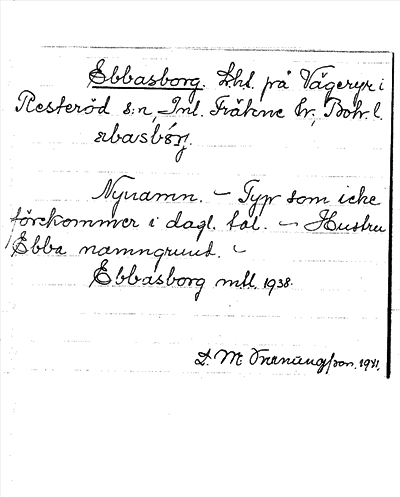 Ebbasborg. Lht. på Vägeryr i
Resteröd s:n, Inl. Fräkne hr, Boh. l.
ebasbórj.
Nynamn. – Typ som icke
förekommer i dagl. tal. – Hustru
Ebba namngrund. –
Ebbasborg mtl. 1938.
D. M. 1941.